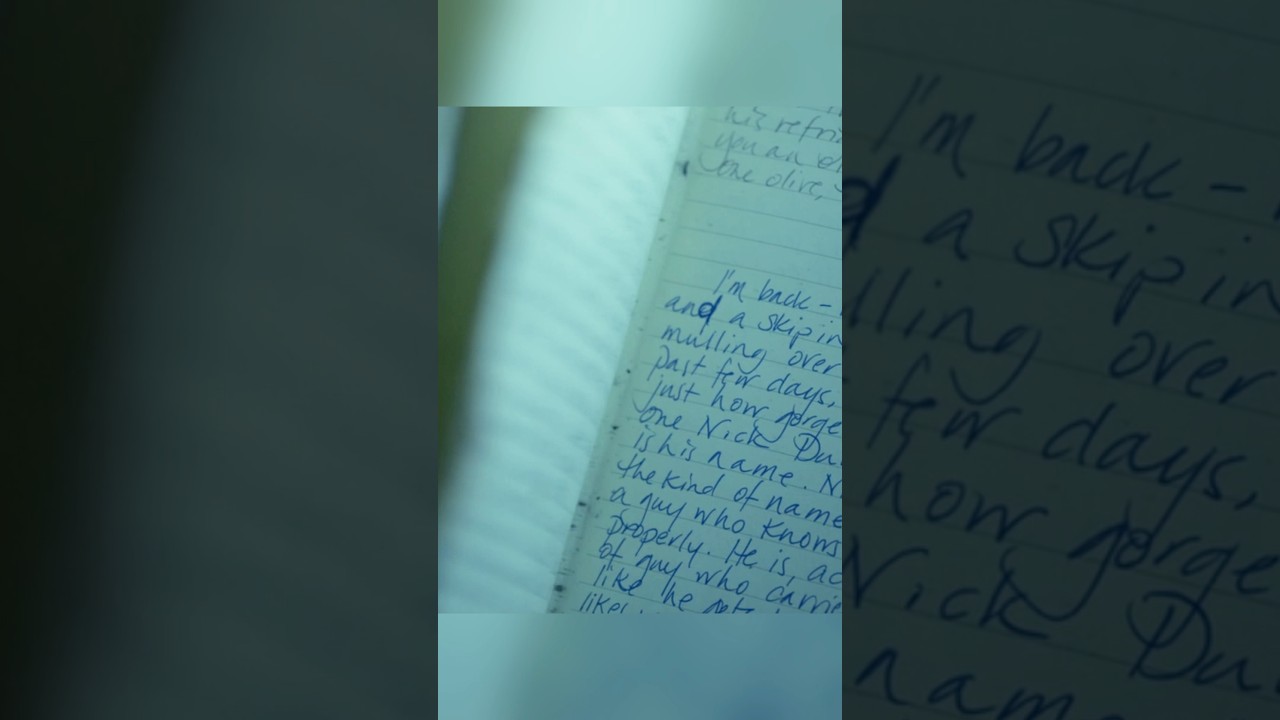 his refri
you an
one olive,
I'm back -
and a skip in
mulling over
past few days,
just how gorge
one Nick Du
is his name. N
the kind of name
a guy who knows
properly. He is, ac
of guy who carrie
like he gets
likes
I'm back -
d a skip in
lling over
few days,
how gorge
Nick Du
name